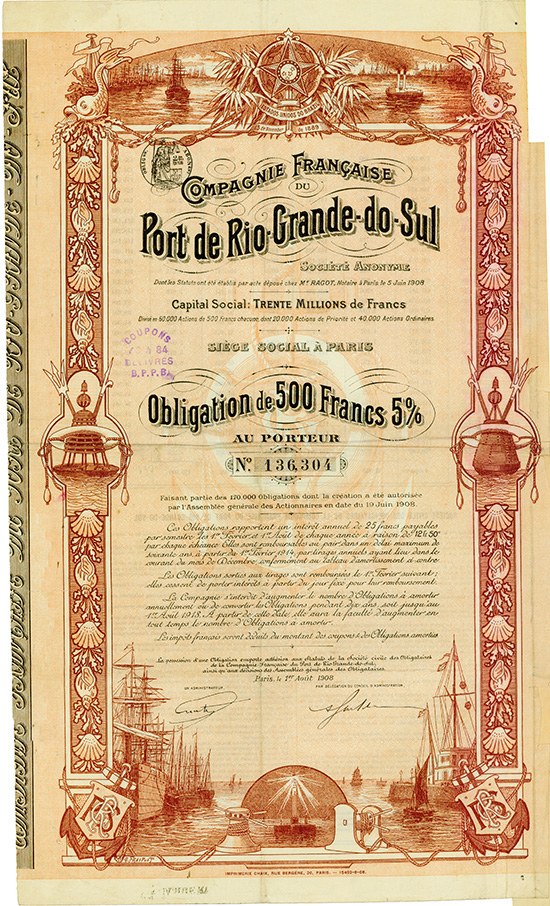 ESTADOS UNIDOS DO BRAZIL
15 de Novembro de 1889
COMPAGNIE FRANÇAISE
DU
Port de Rio-Grande-do-Sul
SOCIÉTÉ ANONYME
Dont les Statuts ont été établis par acte déposé chez Me RAGOT, Notaire à Paris le 5 Juin 1908
Capital Social: TRENTE MILLIONS de Francs
Divisé en 60.000 Actions de 500 francs chacune, dont 20.000 Actions de Priorité et 40.000 Actions Ordinaires
SIÈGE SOCIAL À PARIS
COUPONS
84
B.P.P.B.
Obligation de 500 Francs 5%
AU PORTEUR
No. 136,304
Faisant partie des 120.000 Obligations dont la création a été autorisée
par l'Assemblée générale des Actionnaires en date du 19 Juin 1908.
Ces Obligations rapportent un intérêt annuel de 25 francs payables
par semestre les 1er Février et 1er Août de chaque année à raison de 12f,50
par chaque échéance. Elles sont remboursables au pair dans un délai maximum de
soixante ans, à partir du 1er Février 1914, par tirages annuels ayant lieu dans le
courant du mois de Décembre, conformément au tableau d'amortissement ci-contre.
Les Obligations sorties aux tirages sont remboursées le 1er Février suivant;
elles cessent de porter intérêts à partir du jour fixé pour leur remboursement.
La Compagnie s'interdit d'augmenter le nombre d'Obligations à amortir
annuellement ou de convertir les Obligations pendant dix ans, soit jusqu'au
1er Août 1918. A partir de cette date, elle aura la faculté d'augmenter en
tout temps le nombre d'Obligations à amortir.
Les impôts français seront déduits du montant des coupons & des Obligations amorties.
La possession d'une Obligation emporte adhésion aux Statuts de la Société civile des Obligataires
de la Compagnie Française du Port de Rio-Grande-do-Sul,
ainsi qu'aux décisions des Assemblées générales des Obligataires.
Paris, le 1er Août 1908
UN ADMINISTRATEUR,
PAR DÉLÉGATION DU CONSEIL D'ADMINISTRATION,
IMPRIMERIE CHAIX, RUE BERGÈRE, 20, PARIS.